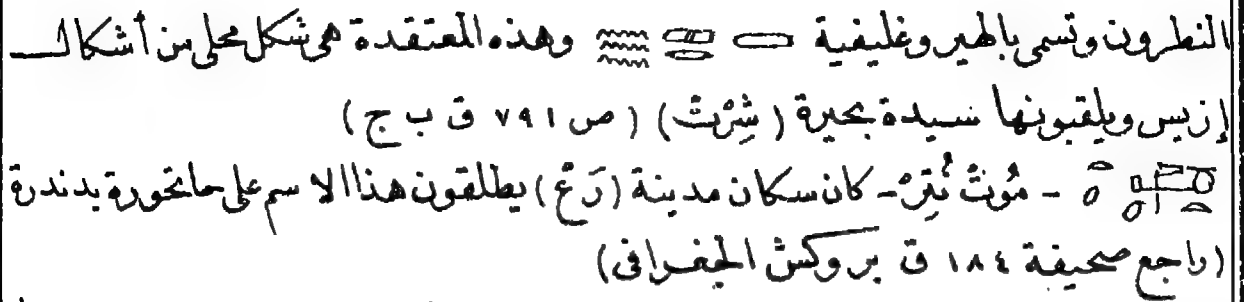 النطرون وتسمى بالهيروغليفية وهذه المعتقدة هى شكل محلى من أشكال
إزيس ويلقبونها سيدة بحيرة (شِرْتْ) (ص ٧٩١ ق ب ج)
- مُوتْ نُتِرْ - كان سكان مدينة (رَعْ) يطلقون هذا الاسم على حاتحورة بدندرة
(راجع صحيفة ١٨٤ ق بروكش الجغرافى)